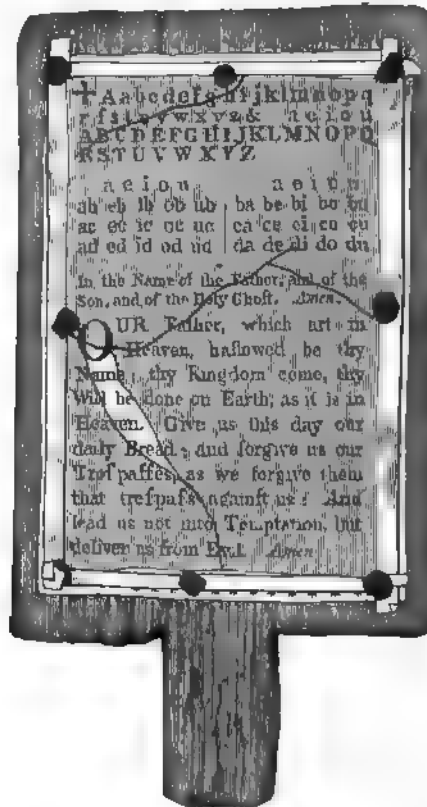 ✝ Aabcdefghijklmnopq
rſstuvwxyz& aeiou
ABCDEFGHIJKLMNOPQ
RSTUVWXYZ
a e i o u a e i o u
ab eb ib ob ub ba be bi bo bu
ac ec ic oc uc ca ce ci co cu
ad ed id od ud da de di do du
In the Name of the Father, and of the
Son, and of the Holy Ghoſt. Amen.
OUR Father, which art in
Heaven, hallowed be thy
Name, thy Kingdom come, thy
Will be done on Earth, as it is in
Heaven. Give us this day our
daily Bread; and forgive us our
Treſpaſſes, as we forgive them
that treſpaſs againſt us: And
lead us not into Temptation, but
deliver us from Evil. Amen.